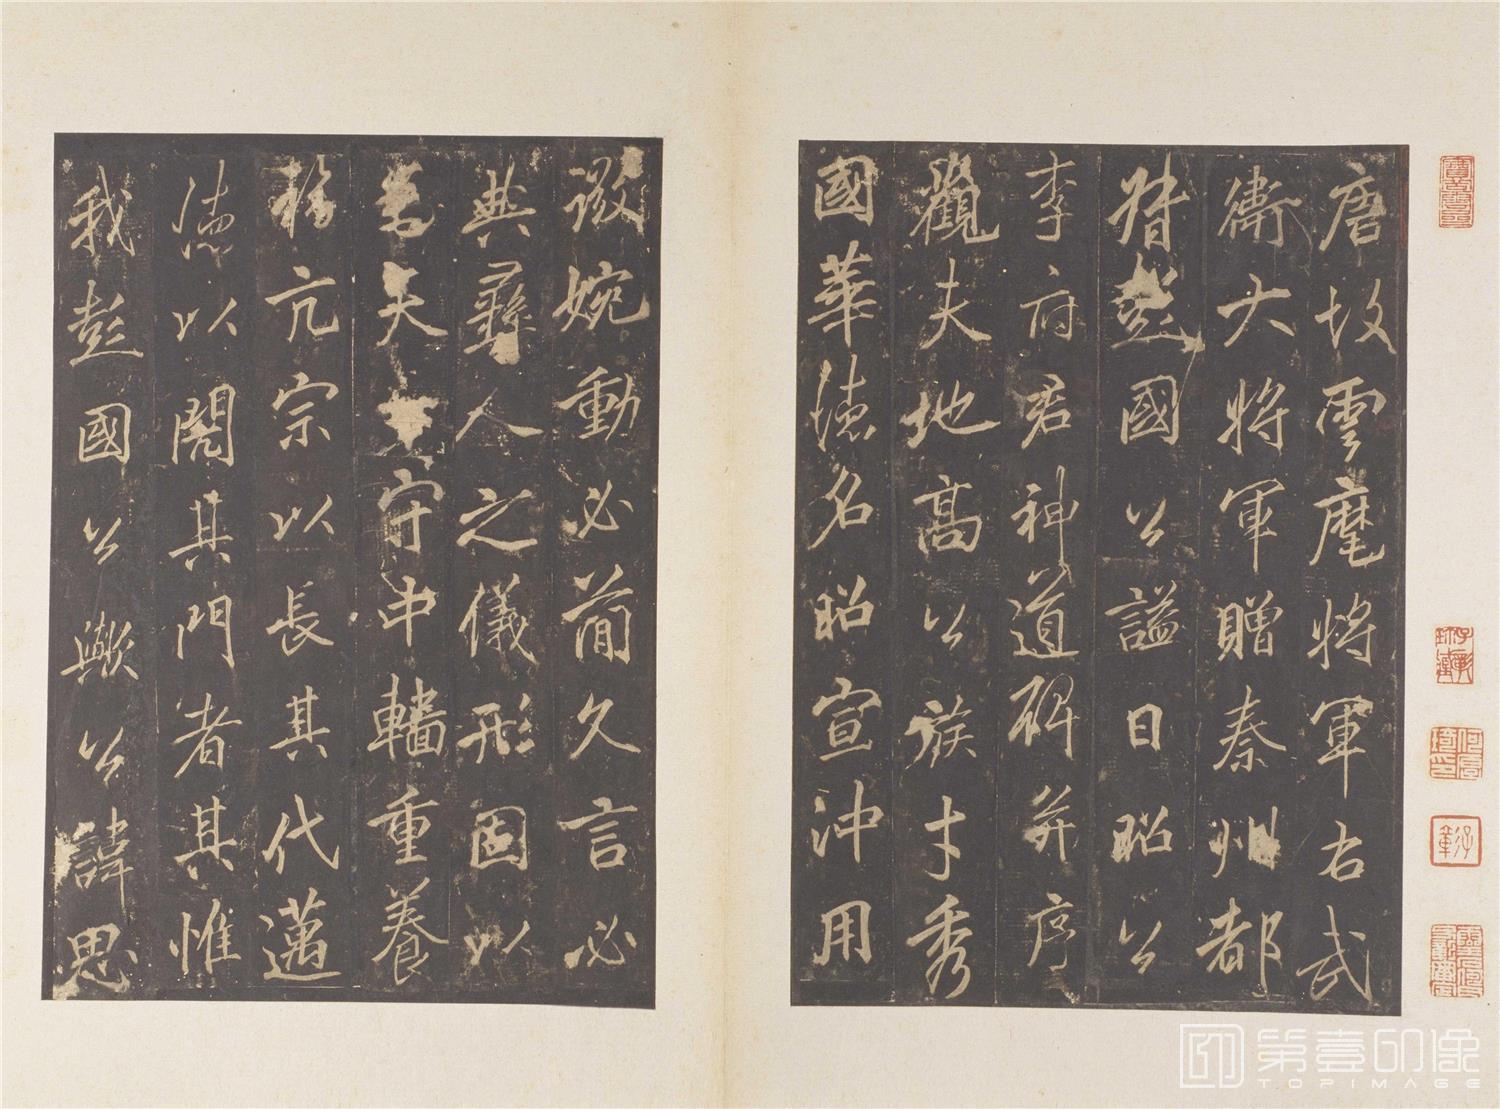 唐故雲麾將軍右武
衛大將軍贈秦州都
督彭國公謚曰昭公
李府君神道碑并序
觀夫地高公族才秀
國華德名昭宣沖用
微婉動必簡久言必
典彝人之儀形固以
為天守中轖重養
亢宗以長其代邁
德以閱其門者其惟
我彭國公歟公諱思
第壹印像
TOPIMAGE